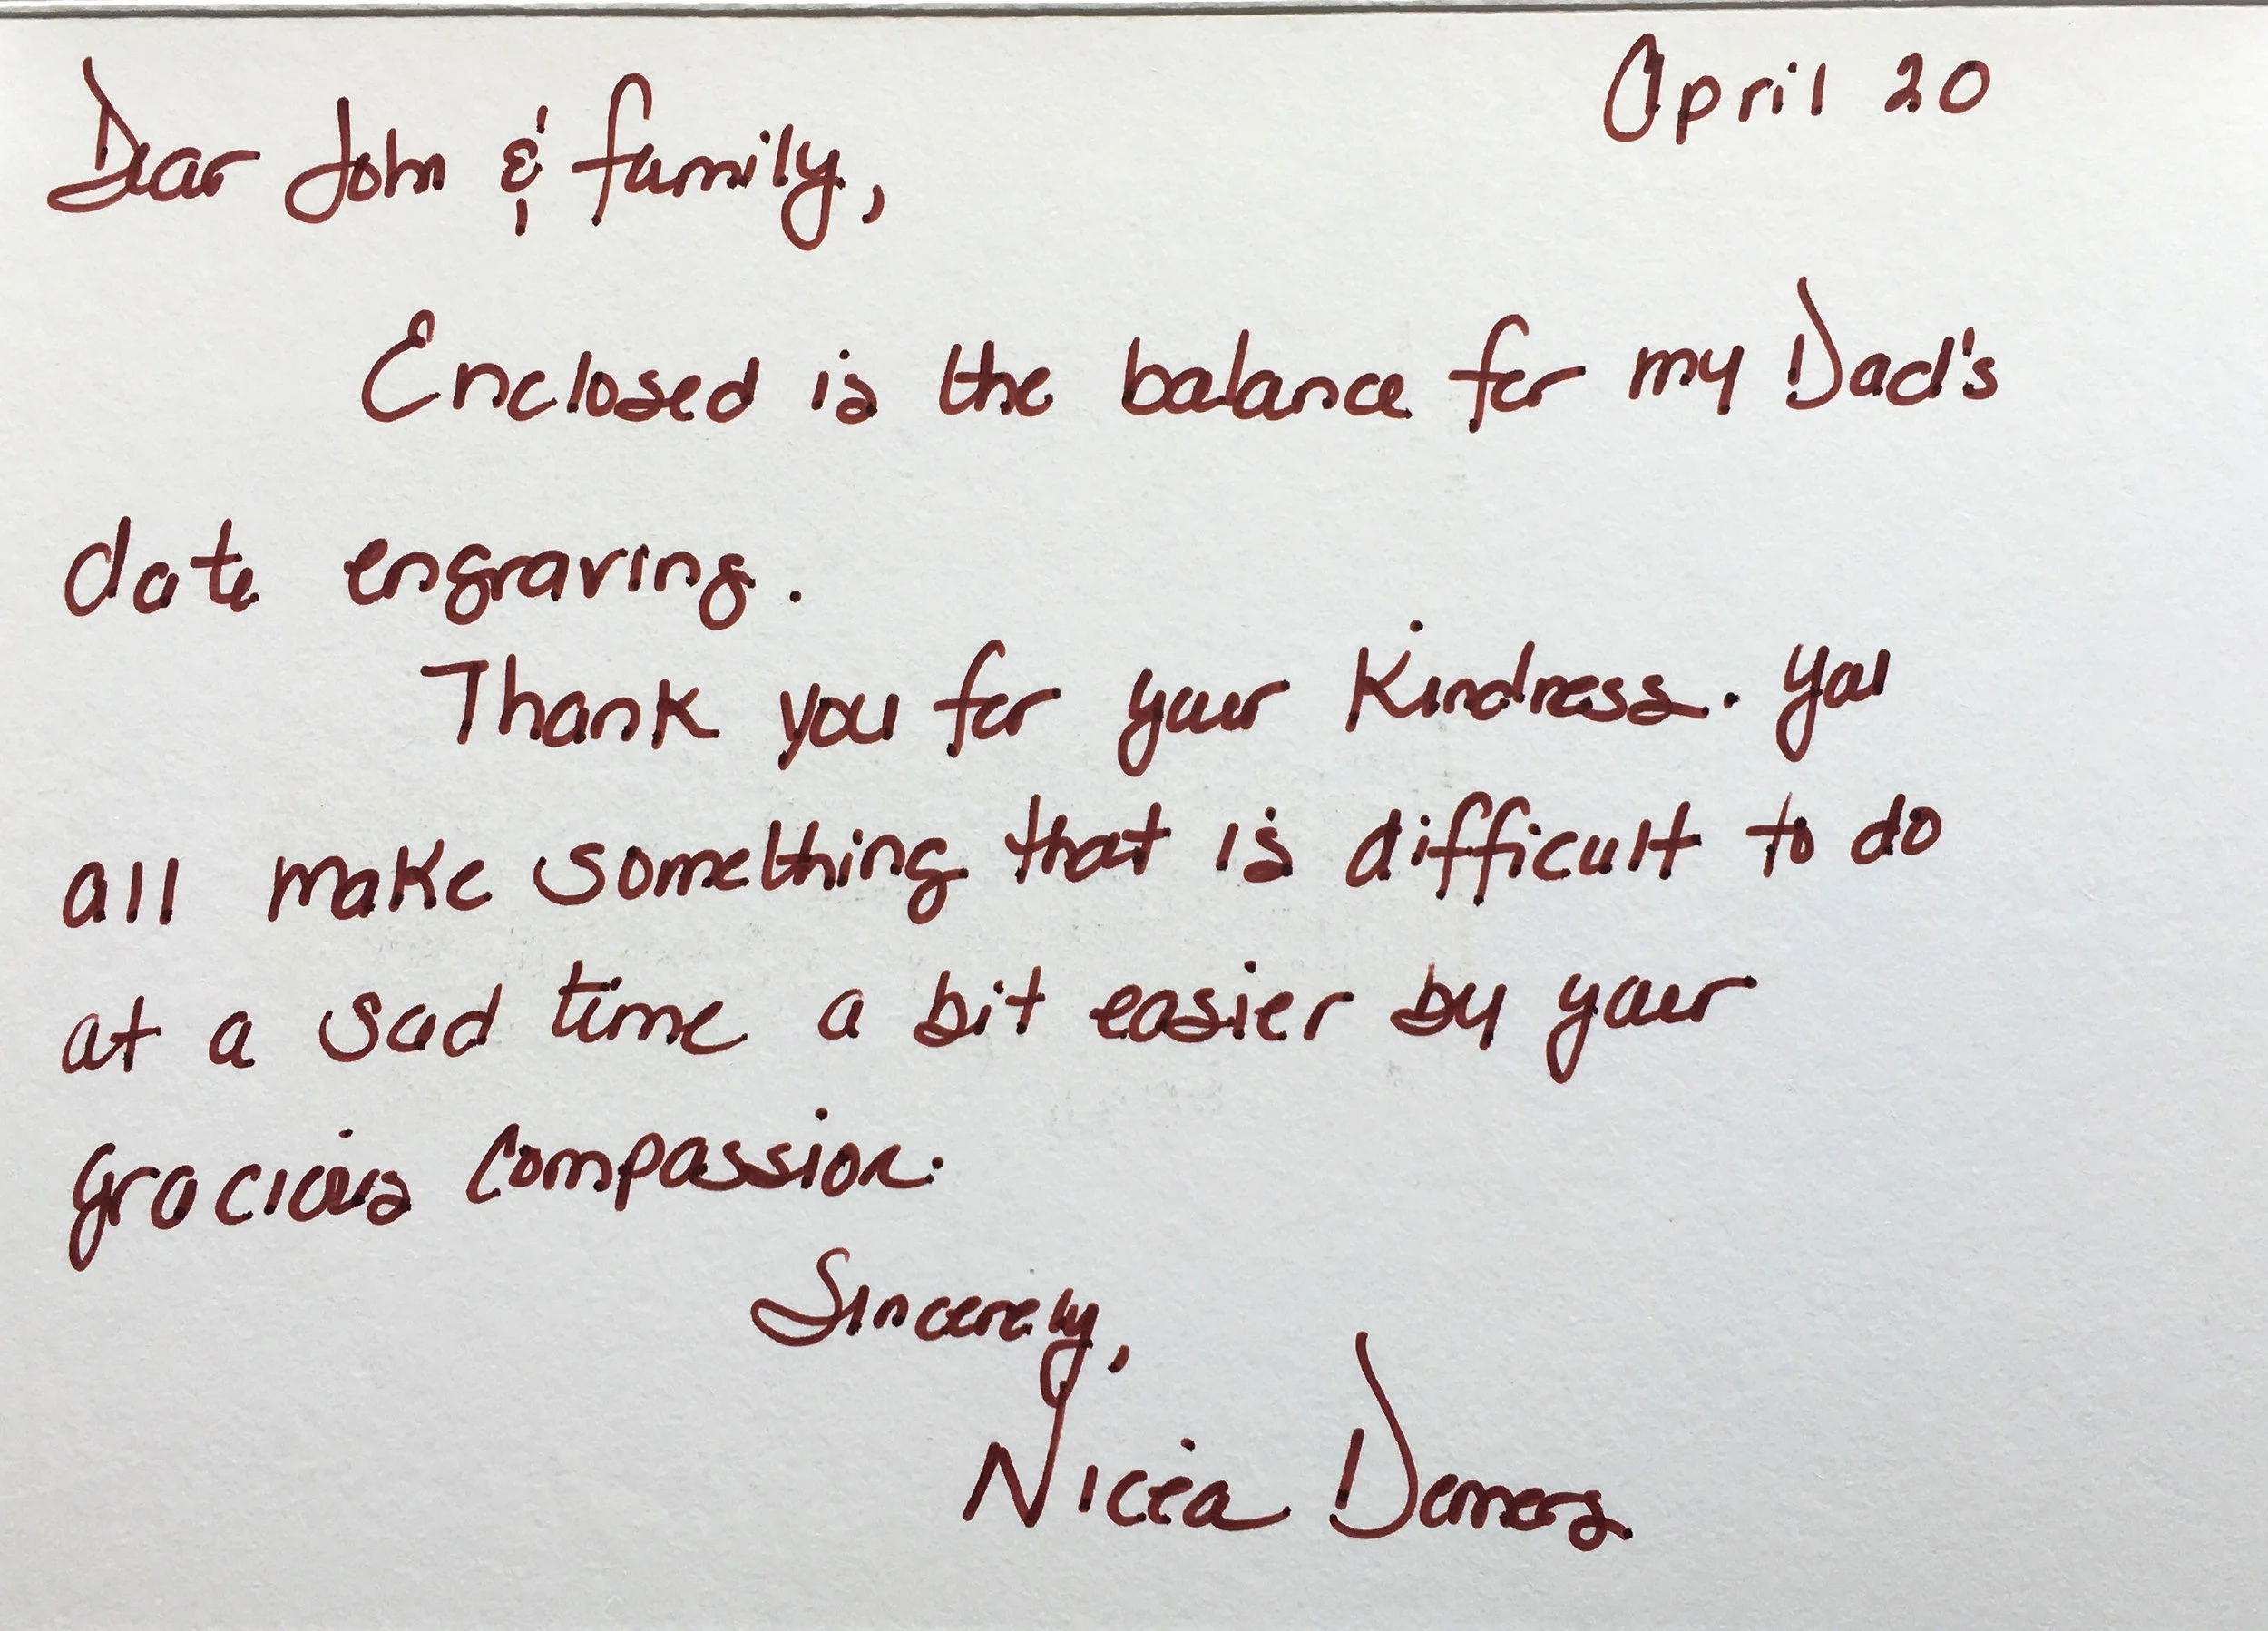 April 20
Dear John & family,
Enclosed is the balance for my Dad's
date engraving.
Thank you for your kindness. You
all make something that is difficult to do
at a sad time a bit easier by your
gracious compassion.
Sincerely,
Nicea Demers